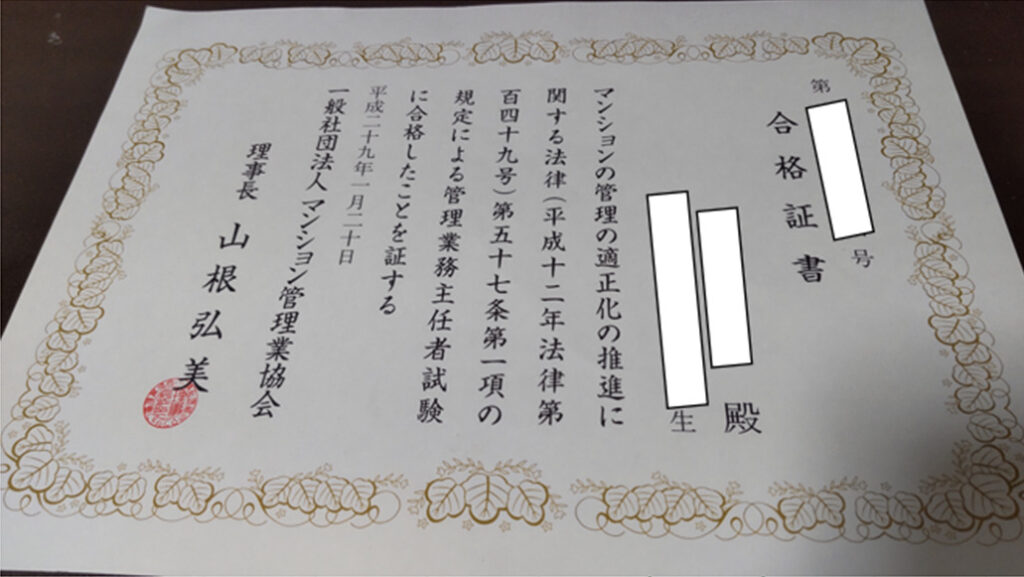 第 号
合格証書
殿
生
マンションの管理の適正化の推進に
関する法律(平成十二年法律第
百四十九号)第五十七条第一項の
規定による管理業務主任者試験
に合格したことを証する
平成二十九年一月二十日
一般社団法人 マンション管理業協会
理事長 山根弘美